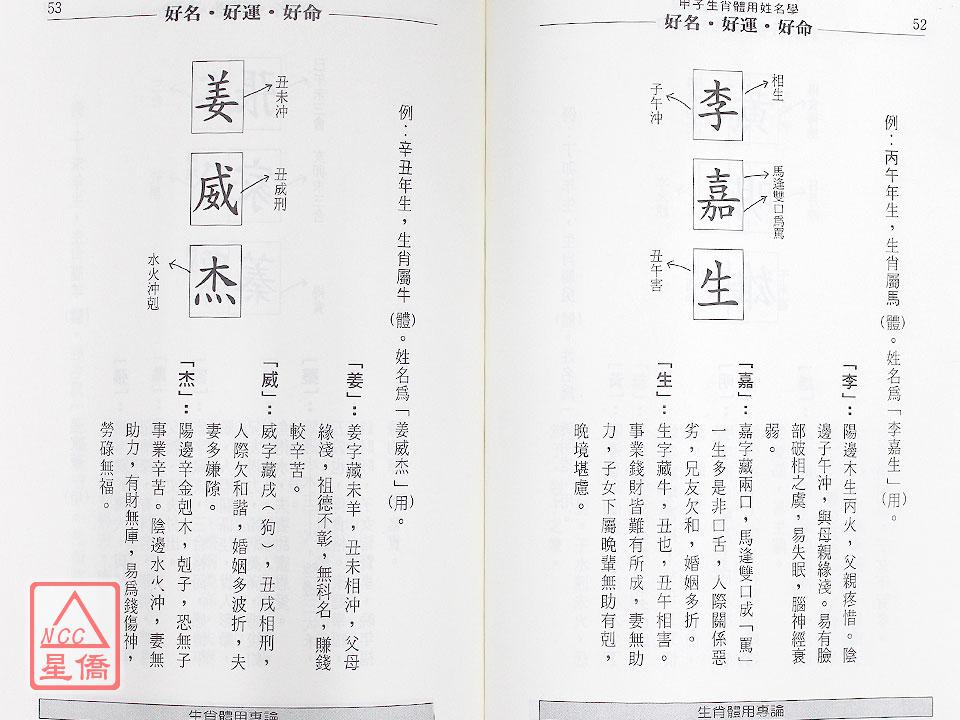 甲子生肖體用姓名學
好名・好運・好命
52
例：丙午年生，生肖屬馬（體）。姓名為「李嘉生」（用）。
李
嘉
生
相生
子午沖
馬逢雙口為罵
丑午害
「李」：陽邊木生丙火，父親疼惜。陰
邊子午沖，與母親緣淺。易有臉
部破相之虞，易失眠，腦神經衰
弱。
「嘉」：嘉字藏兩口，馬逢雙口成「罵」
一生多是非口舌，人際關係惡
劣，兄友欠和，婚姻多折。
「生」：生字藏牛，丑也，丑午相害。
事業錢財皆難有所成，妻無助
力，子女下屬晚輩無助有剋，
晚境堪慮。
生肖體用專論
53
好名・好運・好命
例：辛丑年生，生肖屬牛（體）。姓名為「姜威杰」（用）。
姜
威
杰
丑未沖
丑威刑
水火沖剋
「姜」：姜字藏未羊，丑未相沖，父母
緣淺，祖德不彰，無科名，賺錢
較辛苦。
「威」：威字藏戌（狗），丑戌相刑，
人際欠和諧，婚姻多波折，夫
妻多嫌隙。
「杰」：陽邊辛金剋木，剋子，恐無子
事業辛苦。陰邊水火沖，妻無
助力，有財無庫，易為錢傷神，
勞碌無福。
生肖體用專論
NCC
星僑